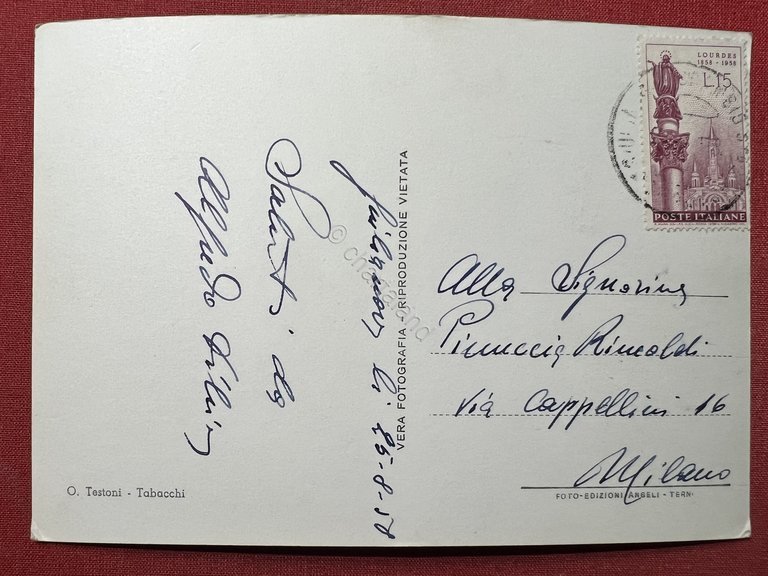 li 25-8-58
Saluti da
Alfredo
VERA FOTOGRAFIA - RIPRODUZIONE VIETATA
© chazeland
LOURDES
1858 - 1958
L.15
POSTE ITALIANE
Alla Signorina
Pinuccia Rimoldi
Via Cappellini 16
Milano
O. Testoni - Tabacchi
FOTO-EDIZIONI ANGELI - TERNI